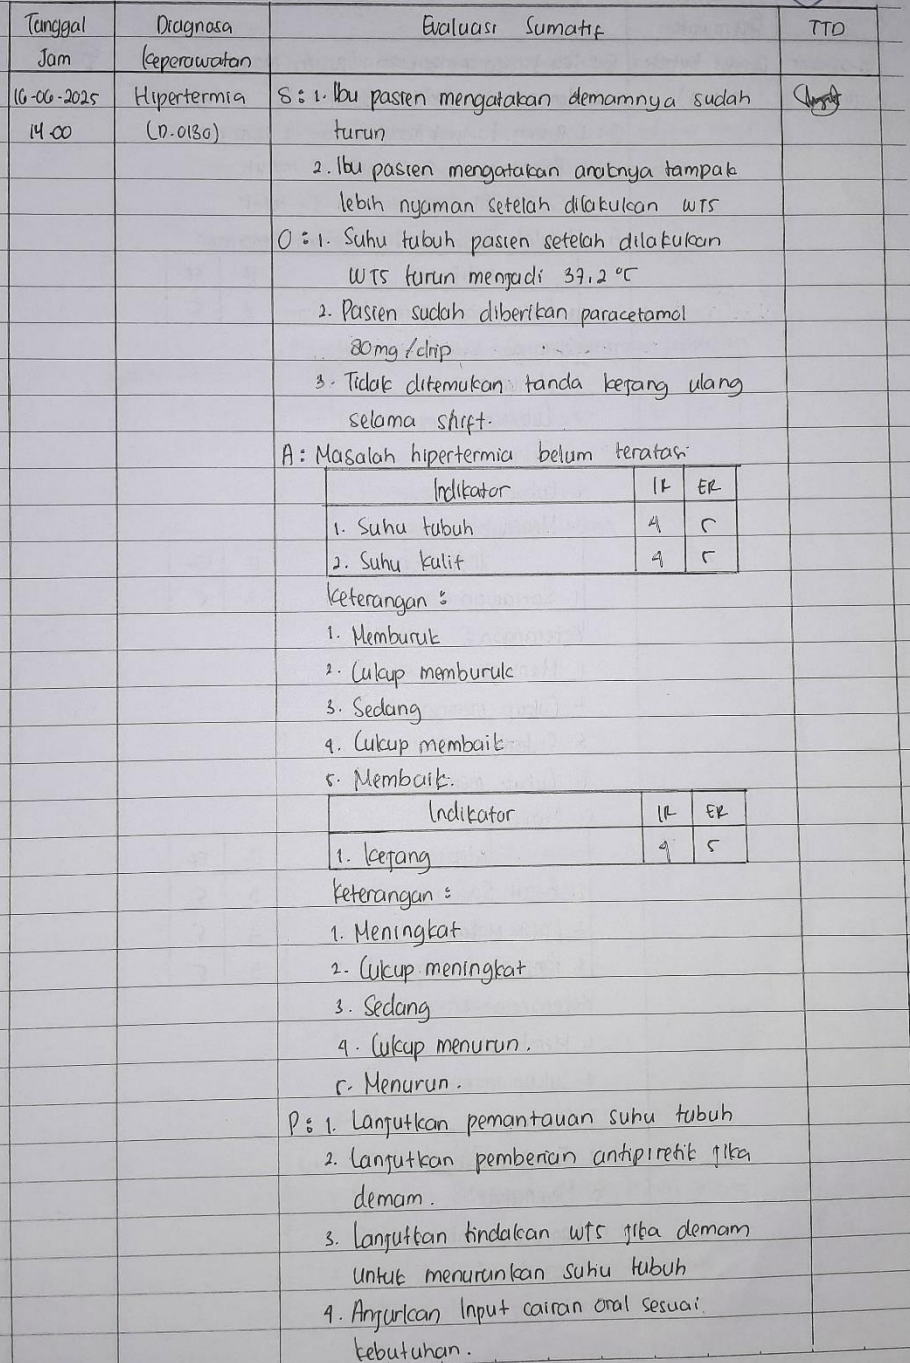 Tanggal Diagnosa Evaluasi Sumatif TTD
Jam Keperawatan
16-06-2025 Hipertermia S : 1. Ibu pasien mengatakan demamnya sudah
14.00 (D.0130) turun
2. Ibu pasien mengatakan anaknya tampak
lebih nyaman setelah dilakukan WTS
O : 1. Suhu tubuh pasien setelah dilakukan
WTS turun menjadi 37,2 °C
2. Pasien sudah diberikan paracetamol
80mg /drip
3. Tidak ditemukan tanda kejang ulang
selama shift.
A : Masalah hipertermia belum teratasi
Indikator IR ER
1. Suhu tubuh 4 5
2. Suhu kulit 4 5
Keterangan :
1. Memburuk
2. Cukup memburuk
3. Sedang
4. Cukup membaik
5. Membaik.
Indikator IR ER
1. Kejang 4 5
Keterangan :
1. Meningkat
2. Cukup meningkat
3. Sedang
4. Cukup menurun.
5. Menurun.
P : 1. Lanjutkan pemantauan suhu tubuh
2. Lanjutkan pemberian antipiretik jika
demam.
3. Lanjutkan tindakan WTS jika demam
untuk menurunkan suhu tubuh
4. Anjurkan Input cairan oral sesuai
kebutuhan.